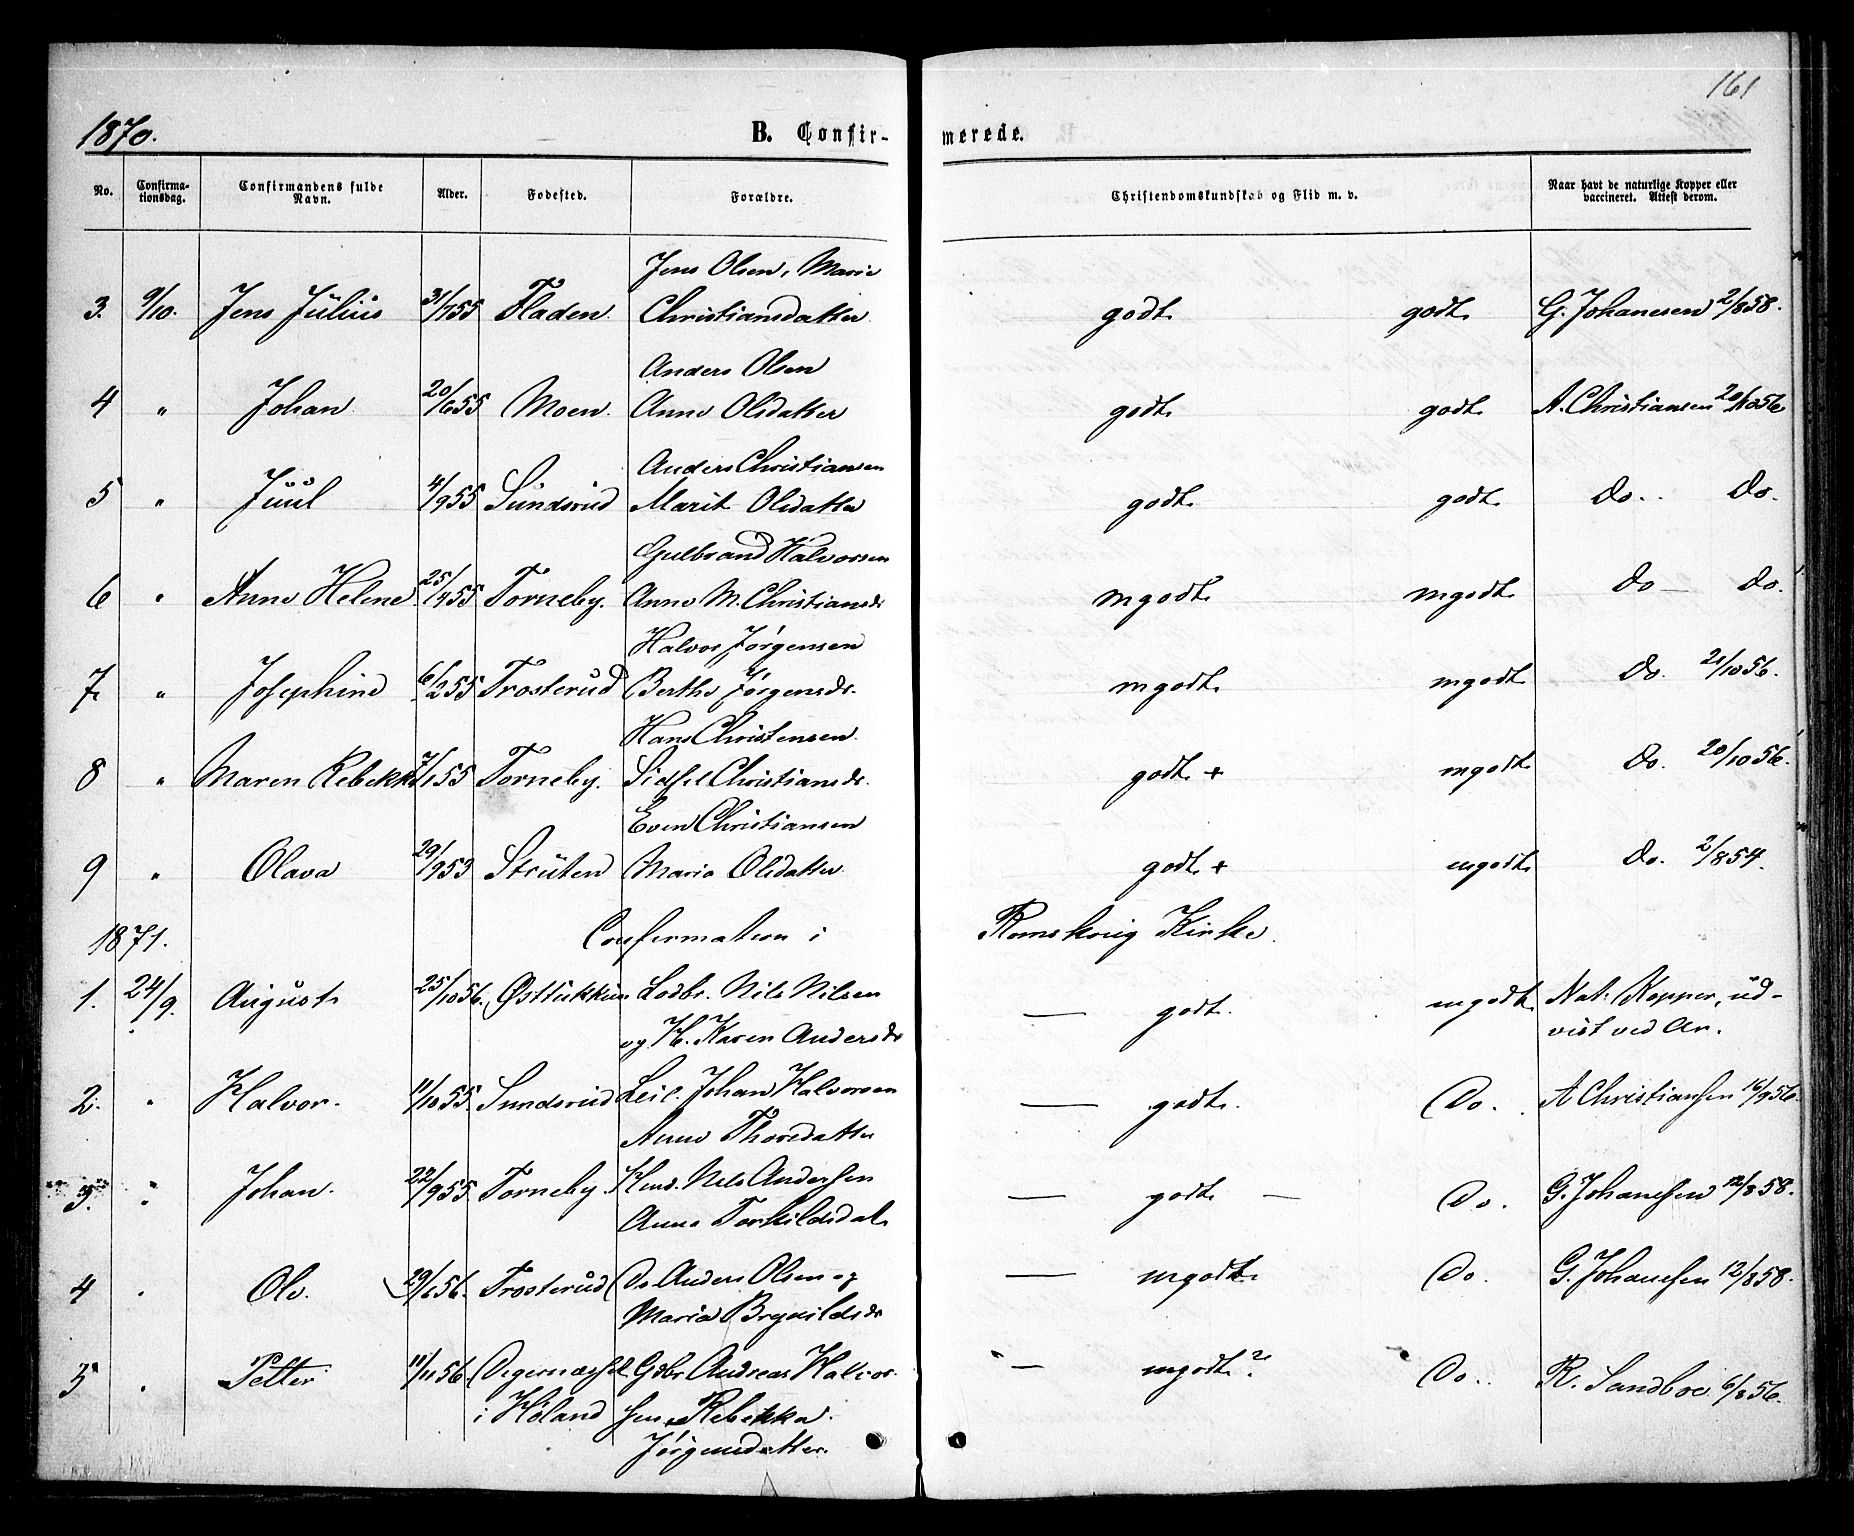 161
1870. B. Confirmerede.
No. Confirmationsdag. Confirmandens fulde Navn. Alder. Fødested. Forældre. Christendomskundskab og Flid m. v. Naar havt de naturlige Kopper eller vaccineret. Attest derom.
Jens Olsen, Marie
3. 9/10. Jens Julius 31/7 55 Fladen. Christiansdatter godt godt G. Johanesen 2/8 58.
Anders Olsen
4 " Johan 20/6 55 Moen. Anne Olsdatter godt godt A. Christiansen 20/10 56
Anders Christiansen
5 " Juul 4/9 55 Sundsrud Marit Olsdatter godt godt Do. Do.
Gulbrand Halvorsen
6 " Anne Helene 25/4 55 Torneby. Anne M. Christiansdr mgodt mgodt Do Do.
Halvor Jørgensen
7 " Josephine 6/2 55 Trosterud Berthe Jørgensdr. mgodt mgodt Do. 21/10 56.
Hans Christensen
8 " Maren Rebekka 7/1 55 Torneby. Sidsel Christiansdr. godt + mgodt Do. 20/10 56.
Even Christiansen
9 " Olava 29/9 53 Struten Maria Olsdatter godt + mgodt Do. 2/8 54.
1871. Confirmation i Romskoug Kirke.
1. 24/9. August 25/10 56. Lodbr. Nils Nilsen — godt. mgodt Nat. Kopper, ud-
og H. Karen Andersdr vist ved Ar.
2. " Halvor. 11/10 55. Sundsrud Leil. Johan Halvorsen — godt. Do. A Christiansen 16/9 56.
Anne Thorsdatter
3. " Johan. 22/9 55 Torneby. Nils Andersen — godt — Do. G. Johanesen 12/8 58.
Anne Torkildsdat.
4 " Ole. 29/6 56. Trosterud Do Anders Olsen og — mgodt Do. G. Johanesen 12/8 58.
Maria Brynildsdr
5 " Petter 11/11 56. Gdbr. Andreas Halvor- — mgodt? Do. R. Sandboe 6/8 56.
i Høland sen Rebekka
Jørgensdatter.